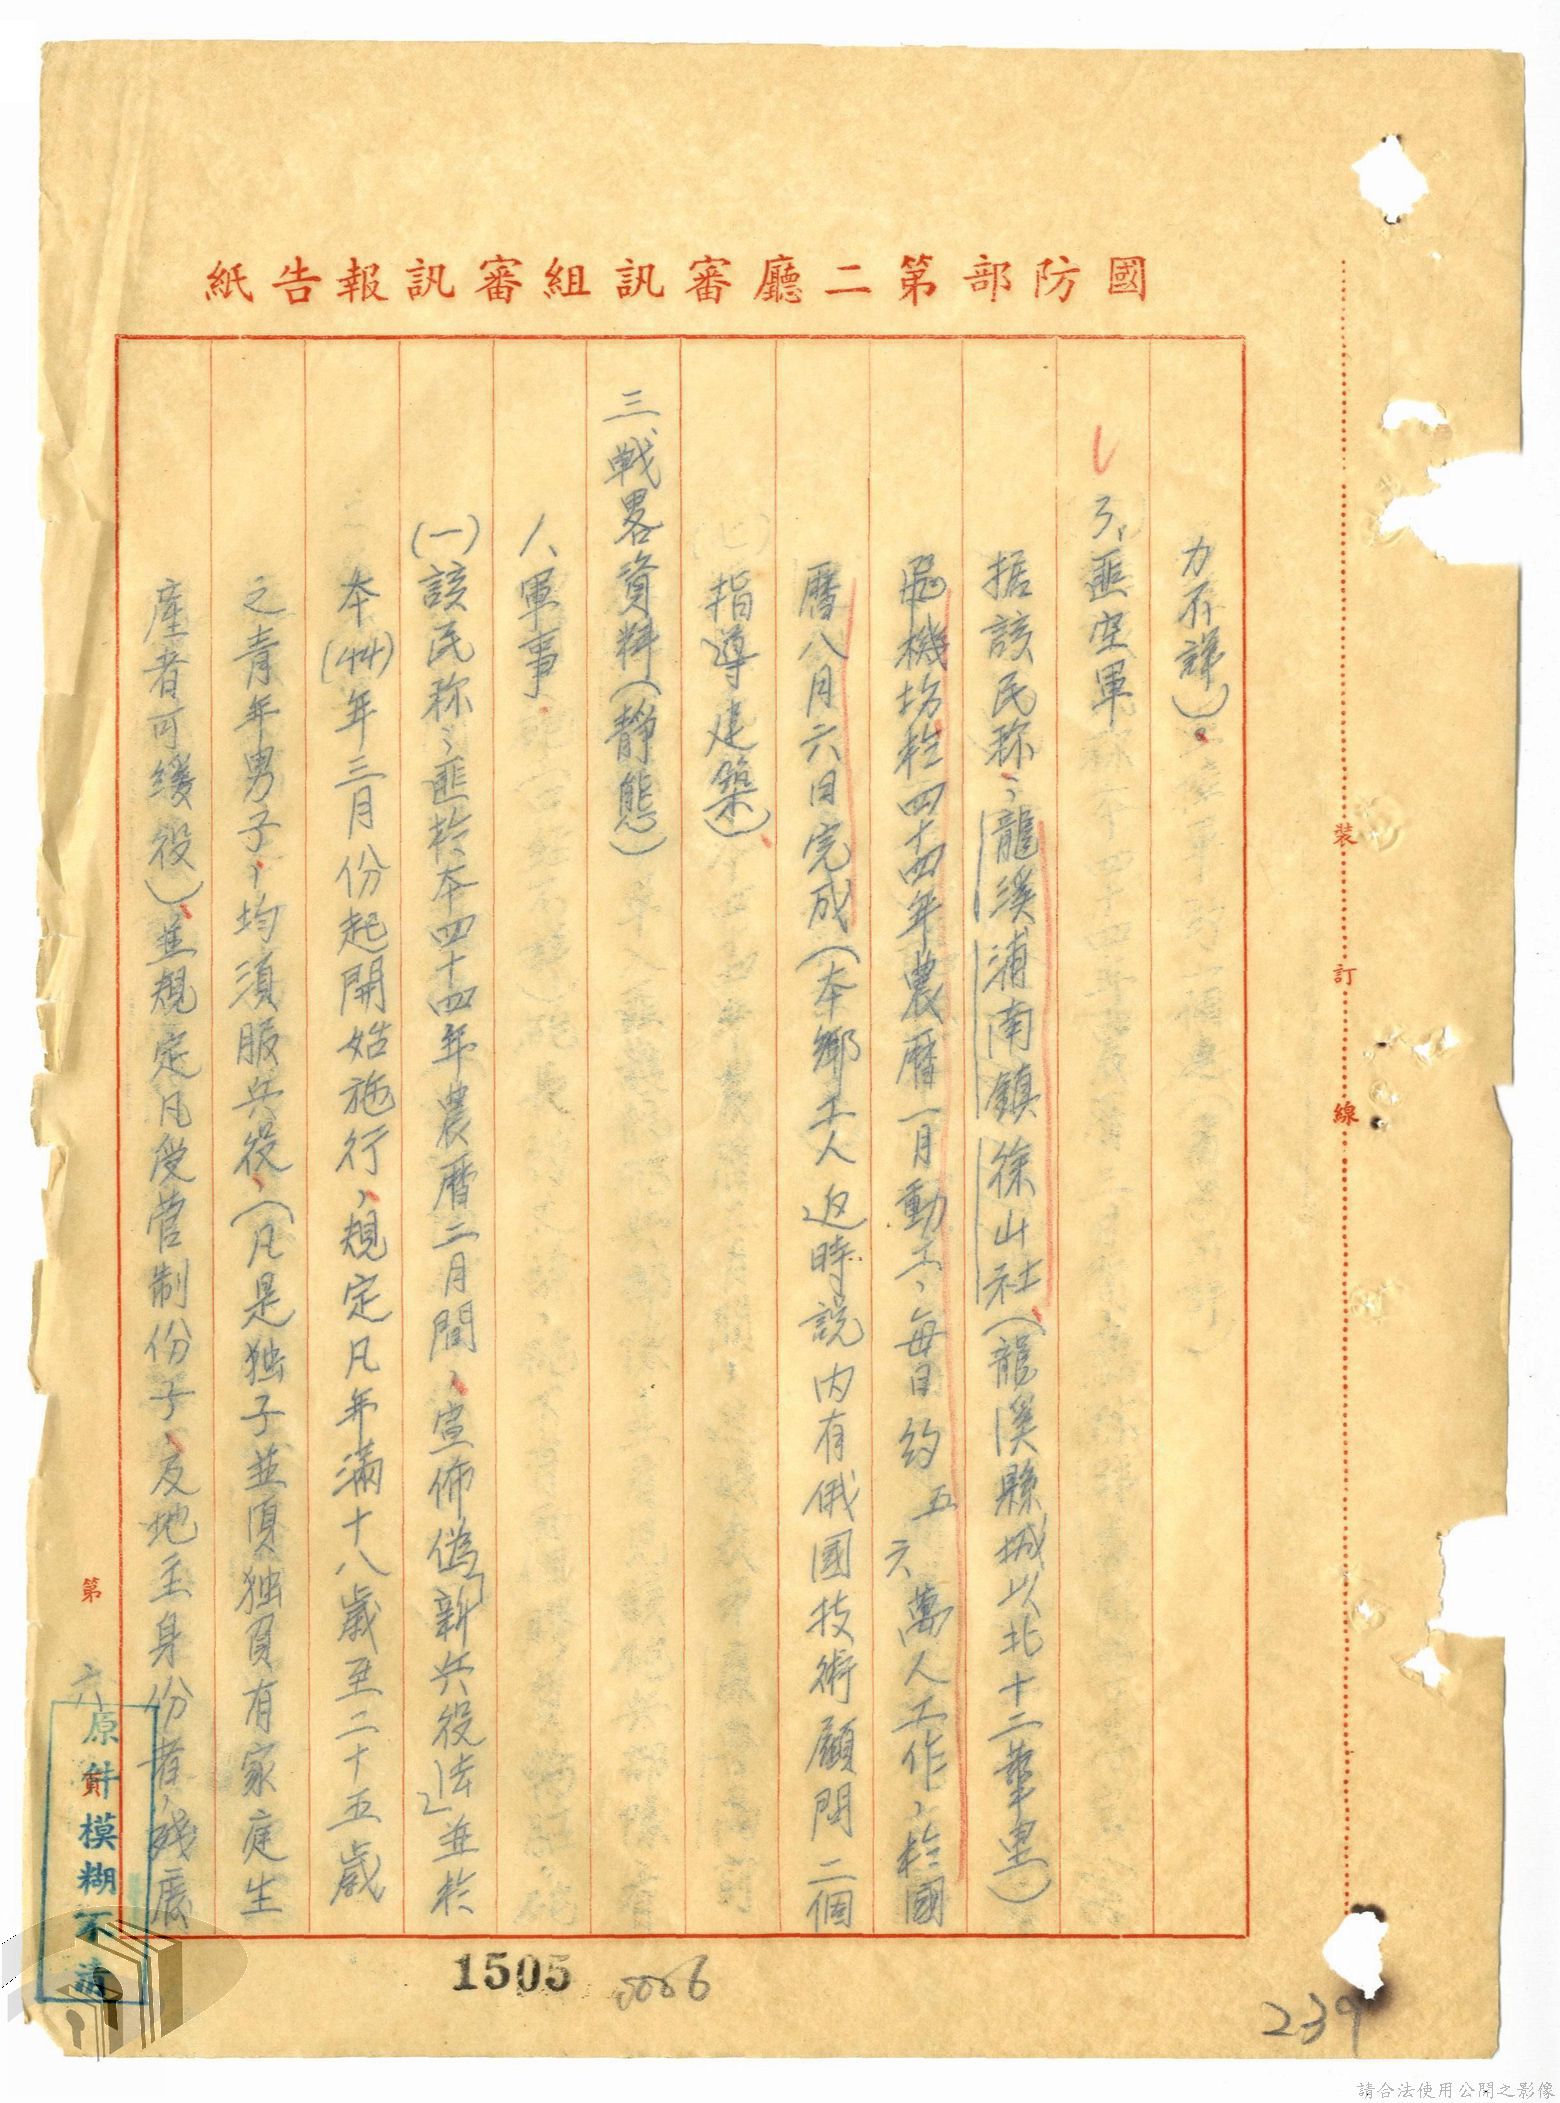 國防部第二廳審訊組審訊報告紙
力不詳)。
3、匪空軍
据該民称、龍溪浦南鎮徐山社(龍溪縣城以北十二華里)
飛機坊於四十四年農曆一月動工、每日約五六萬人工作、於國
曆八月六日完成(本鄉工人返時説内有俄國技術顧問二個
指導建築)、
三、戰畧資料(靜態)
1、軍事
(一)該民称、匪於本四十四年農曆二月間、宣佈偽「新兵役法」並於
本(44)年三月份起開始施行,規定凡年滿十八歲至二十五歲
之青年男子,均須服兵役、(凡是独子並須独負有家庭生
產者可緩役)、並規定凡受管制份子、及地主身份者,殘廢
裝訂線
第六頁
原件模糊不清
1505
0006
239
請合法使用公開之影像